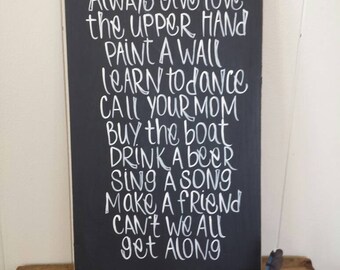 ALWAYS GIVE LOVE
the UPPER HAND
PAINT A WALL
LEARN to DANCE
CALL YOUR MOM
BUY the BOAT
DRINK A BEER
SING A SONG
MAKE A FRIEND
CAN'T WE ALL
get ALONG